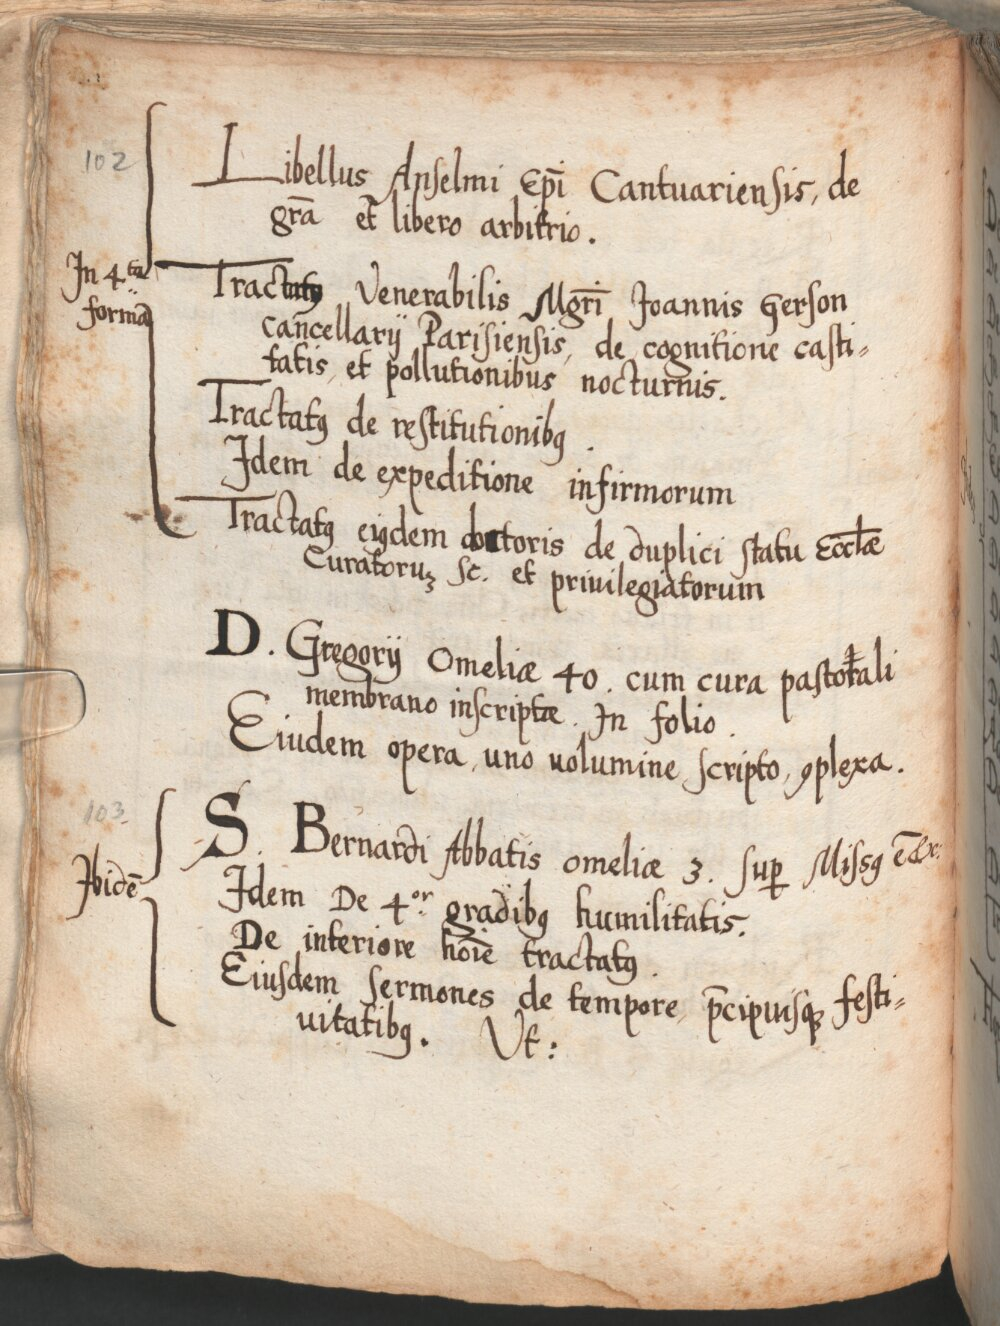 102
Libellus Anselmi Ep̄i Cantuariensis, de
gr̄a et libero arbitrio.
In 4.ta
forma
Tractatꝰ Venerabilis Mgr̄i Joannis Gerson
cancellarij Parisiensis, de cognitione casti=
tatis, et pollutionibus nocturnis.
Tractatꝰ de restitutionibꝰ.
Idem de expeditione infirmorum
Tractatꝰ eiꝰdem doctoris de duplici statu Eccl̄æ
Curatoruꝫ sc. et privilegiatorum
D. Gregorij Omeliæ 40. cum cura pastorali
membrano inscriptæ. In folio.
Eiusdem opera, uno uolumine scripto, ꝯplexa.
103.
Ibidē
S. Bernardi Abbatis omeliæ 3. suꝑ Missꝰ ē &c:
Idem De 4.or gradibꝰ humilitatis.
De interiore hoīe tractatꝰ.
Eiusdem sermones de tempore, p̄cipuisqꝫ festi=
uitatibꝰ. Vt: